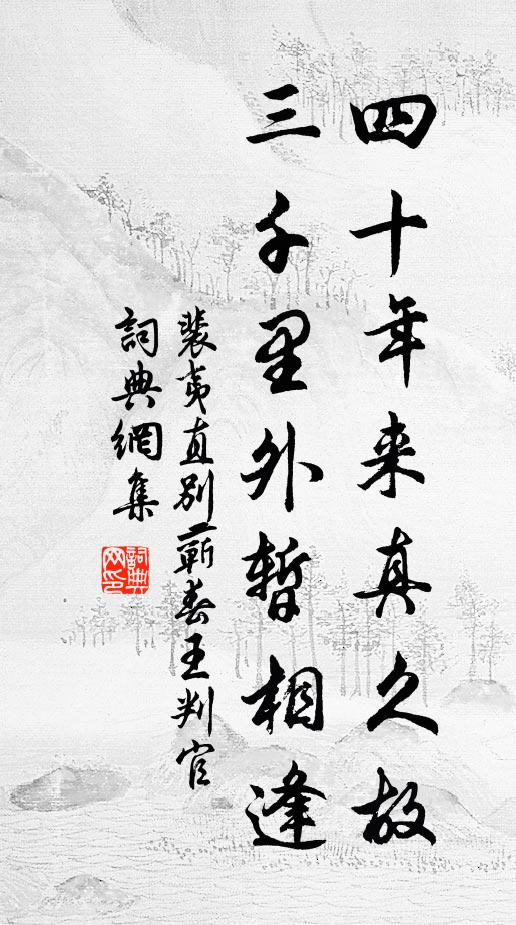 四十年来真久故
三千里外暫相逢
裴夷直别蘄春王判官
詞典網集
詞典網印